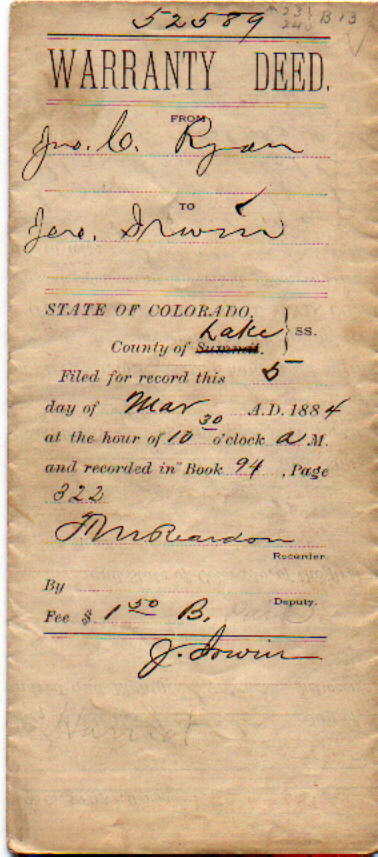 52589
B 13
WARRANTY DEED.
FROM
Jno. C. Ryan
TO
Jere. Irwin
STATE OF COLORADO,
Lake
County of Summit. } SS.
Filed for record this 5
day of Mar A.D. 1884
at the hour of 10 30 o'clock a M.
and recorded in Book 94, Page
322
Reardon
Recorder.
By
Deputy.
Fee $ 1 50 B.
J. Irwin